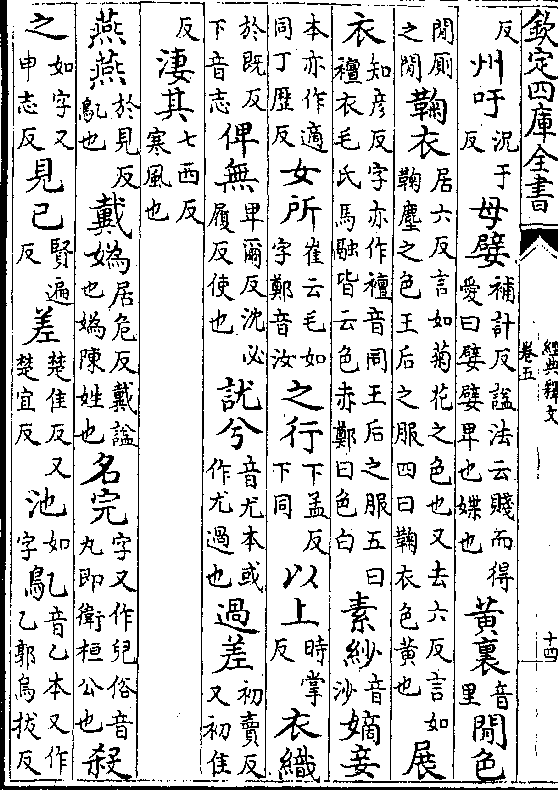 欽定四庫全書
經典釋文
卷五
十四
反州吁況于反母嬖補計反諡法云賤而得愛曰嬖嬖卑也媟也黃裏音里閒色
閒廁之閒鞠衣居六反言如菊花之色也又去六反言如鞠塵之色王后之服四曰鞠衣色黃也展
衣知彥反字亦作襢音同王后之服五曰襢衣毛氏馬融皆云色赤鄭曰色白素紗音沙嫡妾
本亦作適同丁歷反女所崔云毛如字鄭音汝之行下孟反下同以上時掌反衣織
於既反下音志俾無卑爾反沈必履反使也訧兮音尤本或作尤過也過差初賣反又初佳
反淒其七西反寒風也
燕燕於見反鳦也戴媯居危反戴諡也媯陳姓也名完字又作兒俗音丸即衛桓公也殺
之如字又申志反見已賢遍反差楚佳反又楚宜反池如字鳦音乙本又作乙郭烏拔反